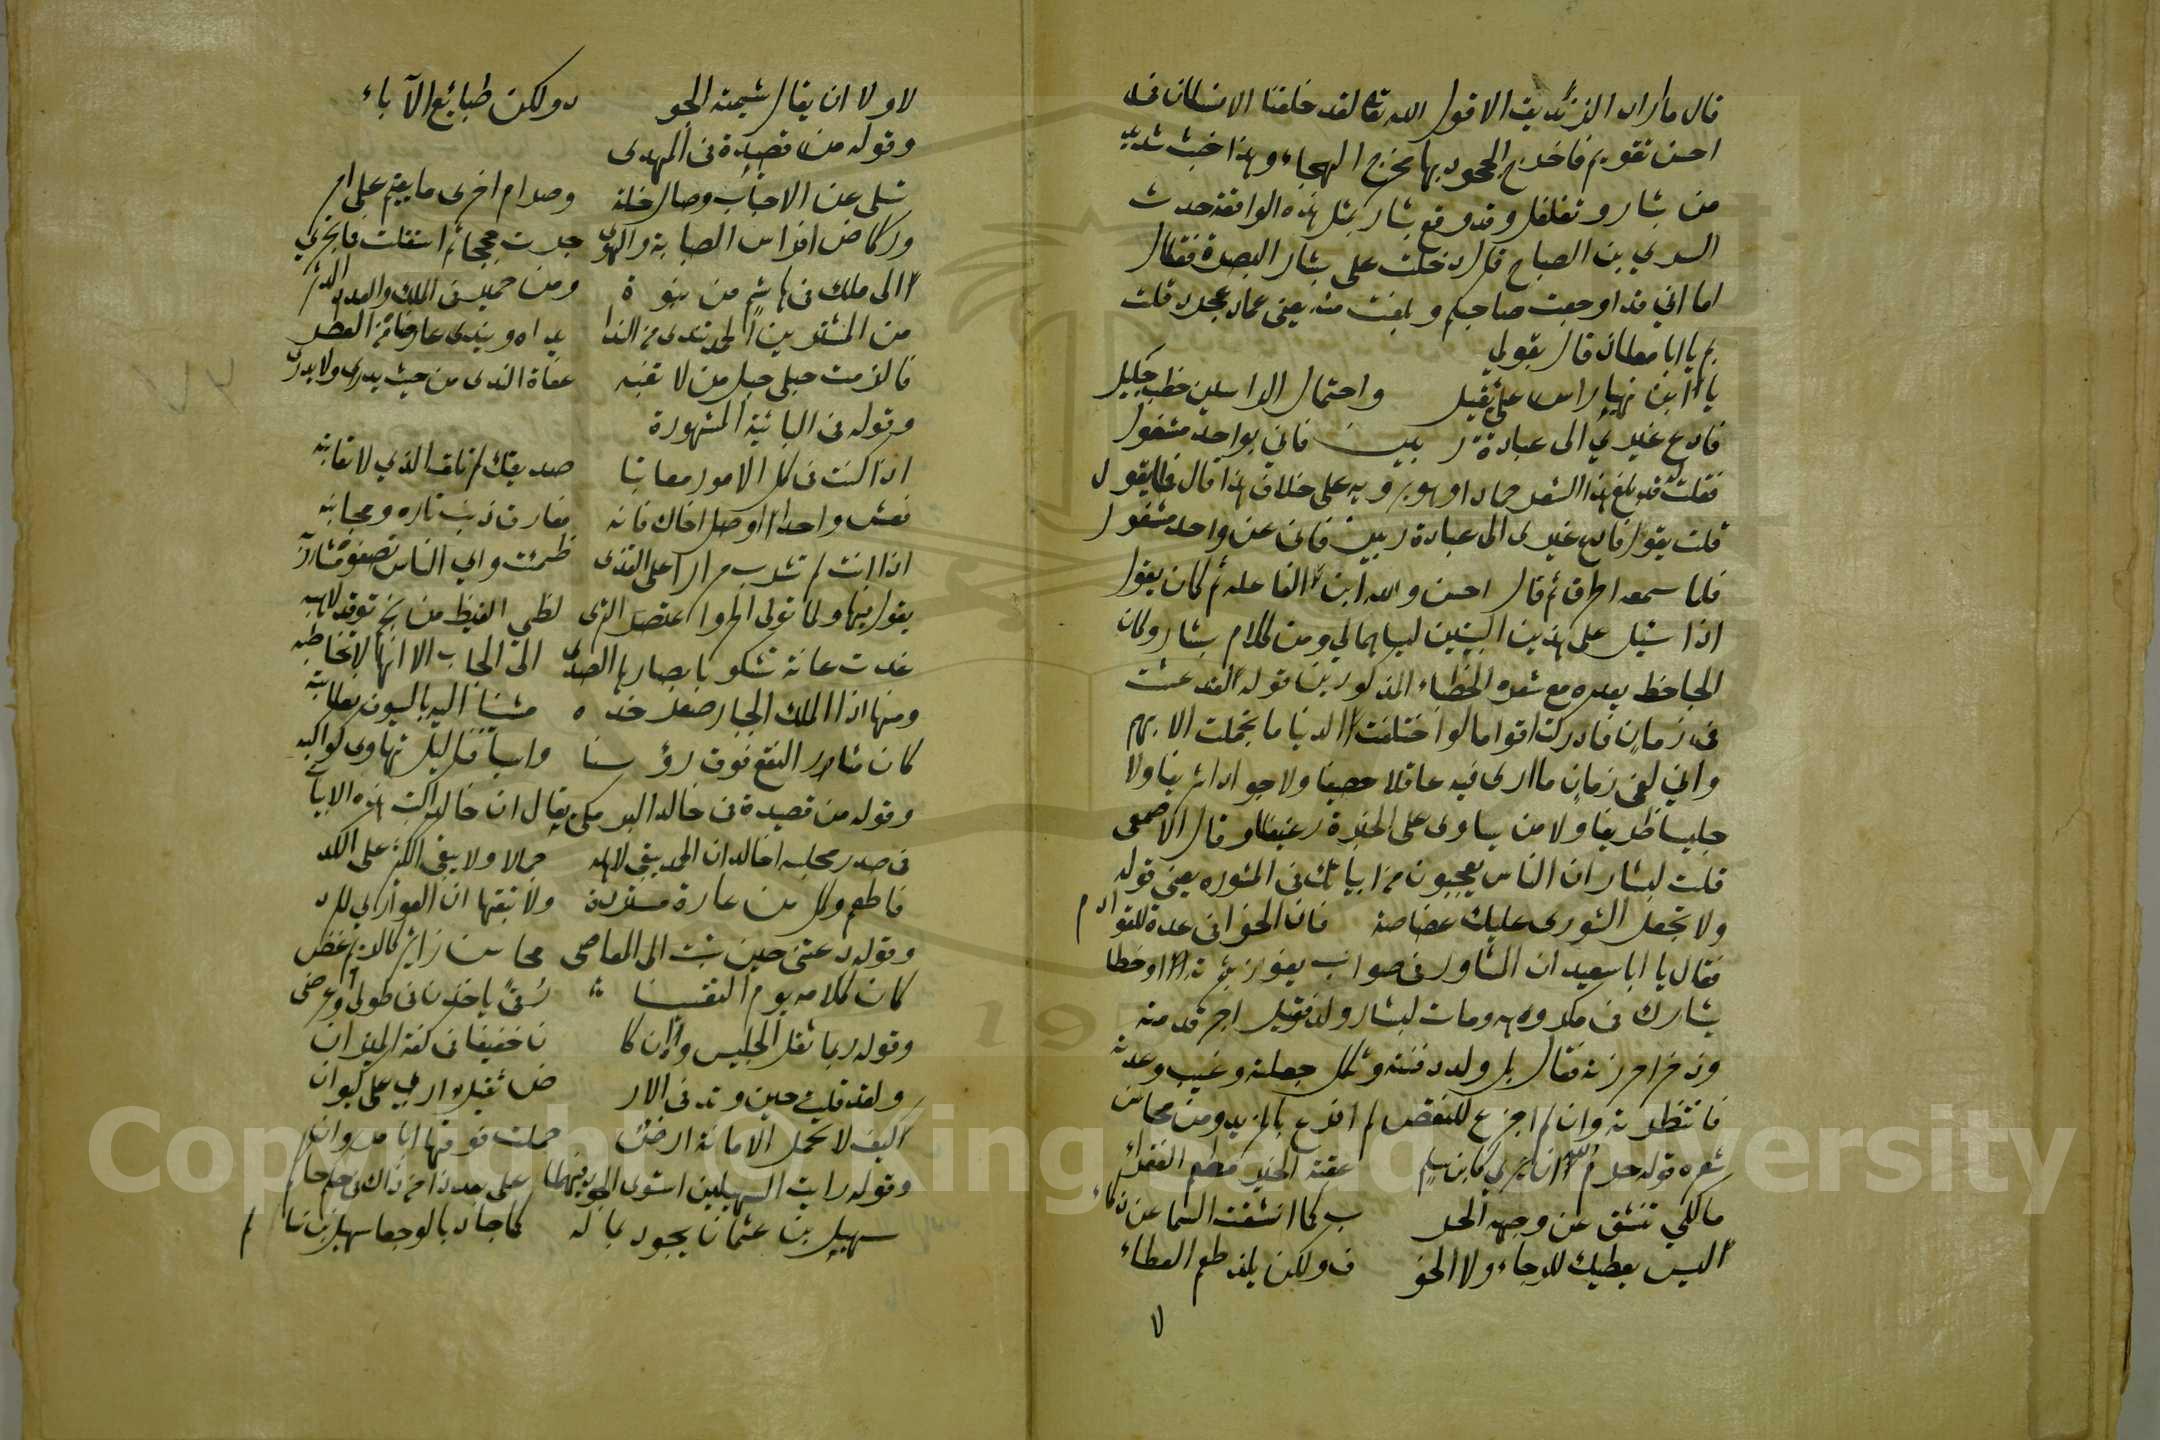 قال ما اراد الزنديق الا قول الله تعالى لقد خلقنا الانسان فى
احسن تقويم فاخرج الجحود بها مخرج الهجاء وهذا خبث شديد
من بشار وتغلغل وقد وقع بشار بمثل هذه الواقعة حدث
السري بن الصباح قال دخلت على بشار البصرة فقال
اما اني قد اوجعت صاحبكم وبلغت منه يعنى حماد عجرد قلت
بم يا ابا معاذ قال بقولي
يا ابن نهيا راس علي ثقيل واحتمال الراسين خطب جليل
فادع غيري الى عبادة ربين فاني بواحد مشغول
فقلت قد بلغ هذا الشعر حماد وهو يرويه على خلاف هذا قال فما يقول
قلت يقول فادع غيرى الى عبادة ربين فانى عن واحد مشغول
فلما سمعه اطرق ثم قال احسن والله ابن الفاعلة ثم كان يقول
اذا سئل على هذين البيتين ليسا هما لي ومن كلام بشار وكان
الجاحظ يعده مع شعره الخطباء المذكورين قوله لقد عشت
فى زمان فادركت اقواما لو اختلفت الدنيا ما تجملت الا بهم
واني لفى زمان ما ارى فيه عاقلا حصيفا ولا جوادا شريفا ولا
جليسا ظريفا ولا من يساوى على الخبرة رغيفا وقال الاصمعى
قلت لبشار ان الناس يعجبون من ابياتك فى المشوره يعنى قوله
ولا تجعل الشورى عليك غضاضة فان الخوافى عدة للقوادم
فقال يا ابا سعيد ان المشاور فى صواب يفوز بثمرته او خطا
يشارك فى مكروهه ومات لبشار ولد فقيل اجر قدمته
وذخر احرزته فقال بل ولد دفنته وثكل تعجلته وغيب وعدته
فانتظرته وان لم اجزع للنقص لم افرح بالمزيد ومن محاسن
شعره قوله حرم الله ان ترى كابن سلم عقبة الخير مطعم الفقراء
مالكي تنشق عن وجهه الحر ب كما انشقت السما عن ذكاء
ليس يعطيك للرجاء ولا الخو ف ولكن يلذ طعم العطاء
لا
لا ولا ان يقال شيمته الجو د ولكن طبايع الآباء
وقوله من قصيدة فى المهدى
تسلى عن الاحباب وصال خلة وصرام اخرى ما يقيم على امر
وركاض افراس الصبابة والهوى جرت حججا ثم استقلت فما تجري
الى ملك فى هاشم من نبوة ومن حمير فى الملك والعدد الدثر
من المشترين الحمد تندى من الندا يداه ويندى عارضاه من العطر
فالزمت حبلى حبل من لا تغبه عفاة الندى من حيث يدرى ولا يدرى
وقوله فى البائية المشهورة
اذا كنت فى كل الامور معاتبا صديقك لم تلق الذي لا تعاتبه
فعش واحدا او صل اخاك فانه مقارف ذنب تاره ومجانبه
اذا انت لم تشرب مرارا على القذى ظمئت واي الناس تصفو مشاربه
يقول فيها ولما تولى الحر واعتصر الثرى لظى القيظ من نجم توقد لاهبه
غدت عانة تشكو بابصارها الصدى الى الجاب الا انها لا تخاطبه
ومنها اذا الملك الجبار صعر خده مشينا اليه بالسيوف نعاتبه
كان مثار النقع فوق رؤسنا واسيافنا ليل تهاوى كواكبه
وقوله من قصيدة فى خالد البرمكي يقال ان خالدا كتب هذه الابيات
فى صدر مجلسه اخالد ان الحمد يبقى لاهله جمالا ولا يبقى الكنز على الكد
فاطعم وكل من عارة مستردة ولا تبقها ان العوارى للرد
وقوله دعتنى حين شبت الى المعاصى محاسن زاير كالريم غض
كان كلامه يوم التقينا رقى ياخذن فى طولى وعرضى
وقوله ربما ثقل الجليس وان كا ن خفيفا فى كفة الميزان
ولقد قلت حين وتد فى الار ض ثقيل اربى على ثهلان
كيف لا تحمل الامانة ارض حملت فوقها ابا مروان
وقوله رايت السهيلين استوى الجود فيهما على بعد ذا من ذاك فى حكم حاكم
سهيل بن عثمان يجود بماله كما جاد بالوجعا سهيل بن سالم